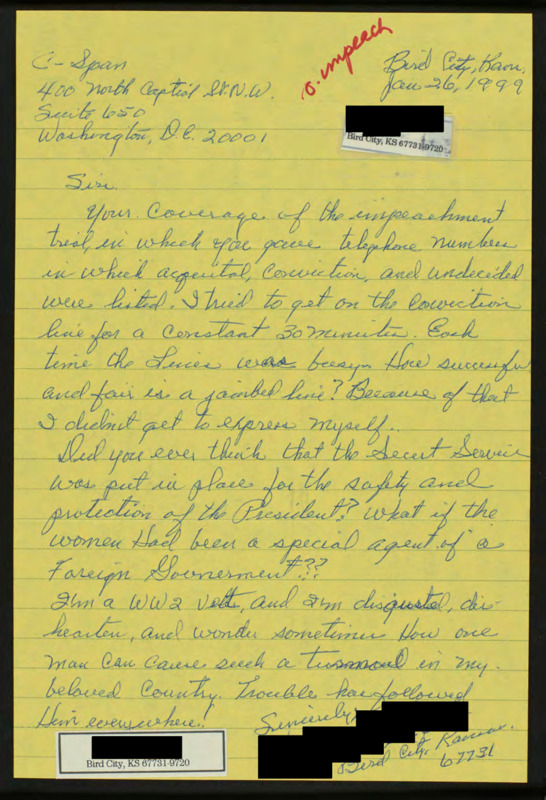 o. impeach
C-Span
400 North Captiol St. N.W.
Suite 650
Washington, D.C. 20001
Bird City, Kan.
Jan 26, 1999
Bird City, KS 67731-9720
Sir.
Your Coverage of the impeachment
trial, in which you gave telephone numbers
in which acquital, Conviction, and undecided
were listed. I tried to get on the conviction
line for a constant 30 minutes. Each
time the Lines was busy. How successful
and fair is a jambed line? Because of that
I didn't get to express myself.
Did you ever think that the Secert Service
was put in place for the safty and
protection of the President? What if the
women Had been a special agent of a
Foreign Government??
I'm a WW2 Vett, and I'm disgusted, dis-
hearten, and wonder sometimes How one
man can cause such a in my
beloved Country. Trouble has followed
Him everywhere!
Sincerely
Bird City, Kansas.
67731
Bird City, KS 67731-9720